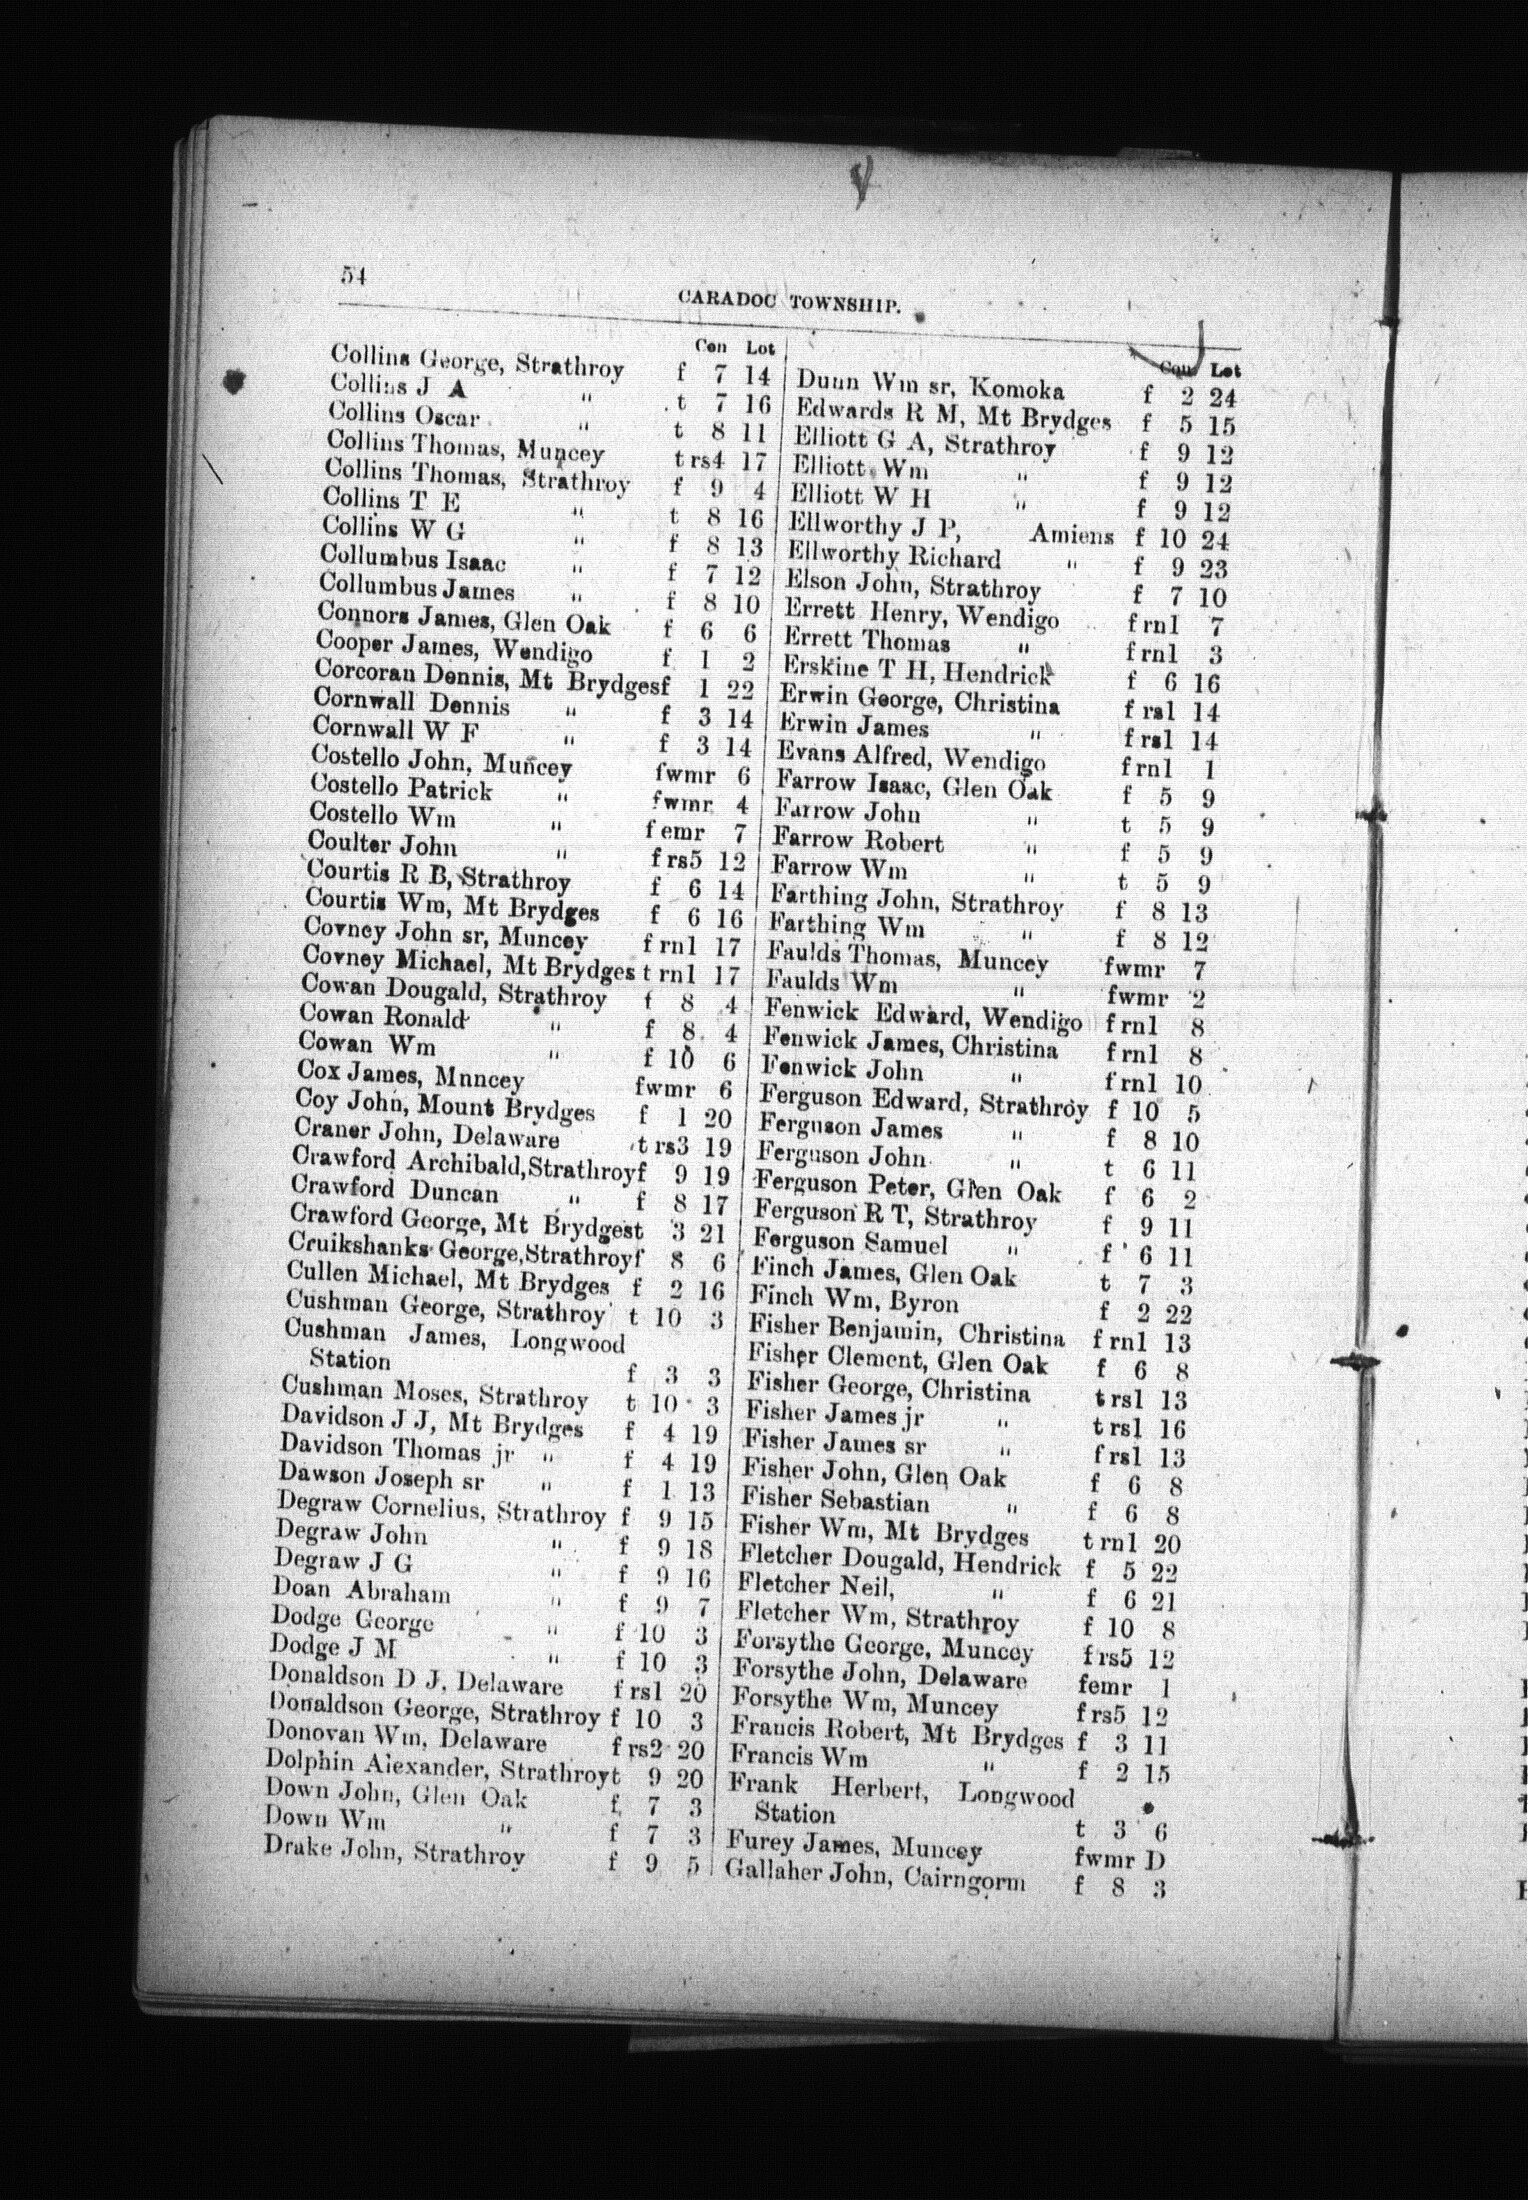 54
CARADOC TOWNSHIP.
Con Lot
Collins George, Strathroy f 7 14
Collins J A " t 7 16
Collins Oscar " t 8 11
Collins Thomas, Muncey t rs4 17
Collins Thomas, Strathroy f 9 4
Collins T E " t 8 16
Collins W G " f 8 13
Collumbus Isaac " f 7 12
Collumbus James " f 8 10
Connors James, Glen Oak f 6 6
Cooper James, Wendigo f 1 2
Corcoran Dennis, Mt Brydges f 1 22
Cornwall Dennis " f 3 14
Cornwall W F " f 3 14
Costello John, Muncey fwmr 6
Costello Patrick " fwmr 4
Costello Wm " f emr 7
Coulter John " f rs5 12
Courtis R B, Strathroy f 6 14
Courtis Wm, Mt Brydges f 6 16
Covney John sr, Muncey f rn1 17
Covney Michael, Mt Brydges t rn1 17
Cowan Dougald, Strathroy f 8 4
Cowan Ronald " f 8 4
Cowan Wm " f 10 6
Cox James, Mnncey fwmr 6
Coy John, Mount Brydges f 1 20
Craner John, Delaware t rs3 19
Crawford Archibald, Strathroy f 9 19
Crawford Duncan " f 8 17
Crawford George, Mt Brydges t 3 21
Cruikshanks George, Strathroy f 8 6
Cullen Michael, Mt Brydges f 2 16
Cushman George, Strathroy t 10 3
Cushman James, Longwood
Station f 3 3
Cushman Moses, Strathroy t 10 3
Davidson J J, Mt Brydges f 4 19
Davidson Thomas jr " f 4 19
Dawson Joseph sr " f 1 13
Degraw Cornelius, Strathroy f 9 15
Degraw John " f 9 18
Degraw J G " f 9 16
Doan Abraham " f 9 7
Dodge George " f 10 3
Dodge J M " f 10 3
Donaldson D J, Delaware f rs1 20
Donaldson George, Strathroy f 10 3
Donovan Wm, Delaware f rs2 20
Dolphin Alexander, Strathroy t 9 20
Down John, Glen Oak f 7 3
Down Wm " f 7 3
Drake John, Strathroy f 9 5
Con Lot
Dunn Wm sr, Komoka f 2 24
Edwards R M, Mt Brydges f 5 15
Elliott G A, Strathroy f 9 12
Elliott Wm " f 9 12
Elliott W H " f 9 12
Ellworthy J P, Amiens f 10 24
Ellworthy Richard " f 9 23
Elson John, Strathroy f 7 10
Errett Henry, Wendigo f rn1 7
Errett Thomas " f rn1 3
Erskine T H, Hendrick f 6 16
Erwin George, Christina f rs1 14
Erwin James " f rs1 14
Evans Alfred, Wendigo f rn1 1
Farrow Isaac, Glen Oak f 5 9
Farrow John " t 5 9
Farrow Robert " f 5 9
Farrow Wm " t 5 9
Farthing John, Strathroy f 8 13
Farthing Wm " f 8 12
Faulds Thomas, Muncey fwmr 7
Faulds Wm " fwmr 2
Fenwick Edward, Wendigo f rn1 8
Fenwick James, Christina f rn1 8
Fenwick John " f rn1 10
Ferguson Edward, Strathroy f 10 5
Ferguson James " f 8 10
Ferguson John " t 6 11
Ferguson Peter, Glen Oak f 6 2
Ferguson R T, Strathroy f 9 11
Ferguson Samuel " f 6 11
Finch James, Glen Oak t 7 3
Finch Wm, Byron f 2 22
Fisher Benjamin, Christina f rn1 13
Fisher Clement, Glen Oak f 6 8
Fisher George, Christina t rs1 13
Fisher James jr " t rs1 16
Fisher James sr " f rs1 13
Fisher John, Glen Oak f 6 8
Fisher Sebastian " f 6 8
Fisher Wm, Mt Brydges t rn1 20
Fletcher Dougald, Hendrick f 5 22
Fletcher Neil, " f 6 21
Fletcher Wm, Strathroy f 10 8
Forsythe George, Muncey f rs5 12
Forsythe John, Delaware femr 1
Forsythe Wm, Muncey f rs5 12
Francis Robert, Mt Brydges f 3 11
Francis Wm " f 2 15
Frank Herbert, Longwood
Station t 3 6
Furey James, Muncey fwmr D
Gallaher John, Cairngorm f 8 3